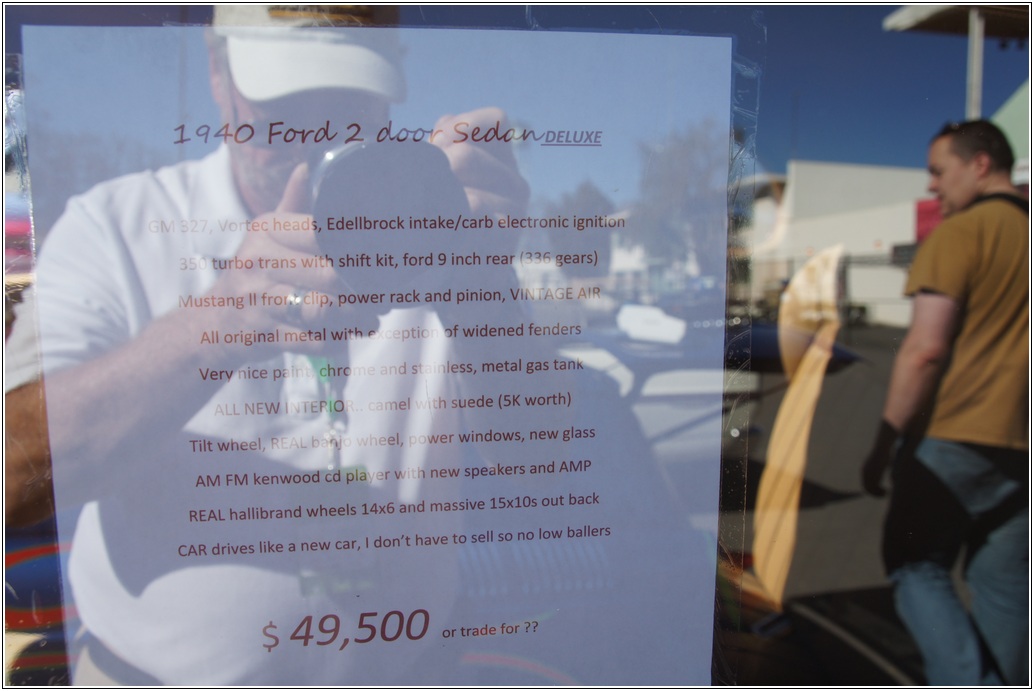 1940 Ford 2 door Sedan DELUXE
GM 327, Vortec heads, Edellbrock intake/carb electronic ignition
350 turbo trans with shift kit, ford 9 inch rear (336 gears)
Mustang ll front clip, power rack and pinion, VINTAGE AIR
All original metal with exception of widened fenders
Very nice paint, chrome and stainless, metal gas tank
ALL NEW INTERIOR.. camel with suede (5K worth)
Tilt wheel, REAL banjo wheel, power windows, new glass
AM FM kenwood cd player with new speakers and AMP
REAL hallibrand wheels 14x6 and massive 15x10s out back
CAR drives like a new car, I don't have to sell so no low ballers
$ 49,500 or trade for ??